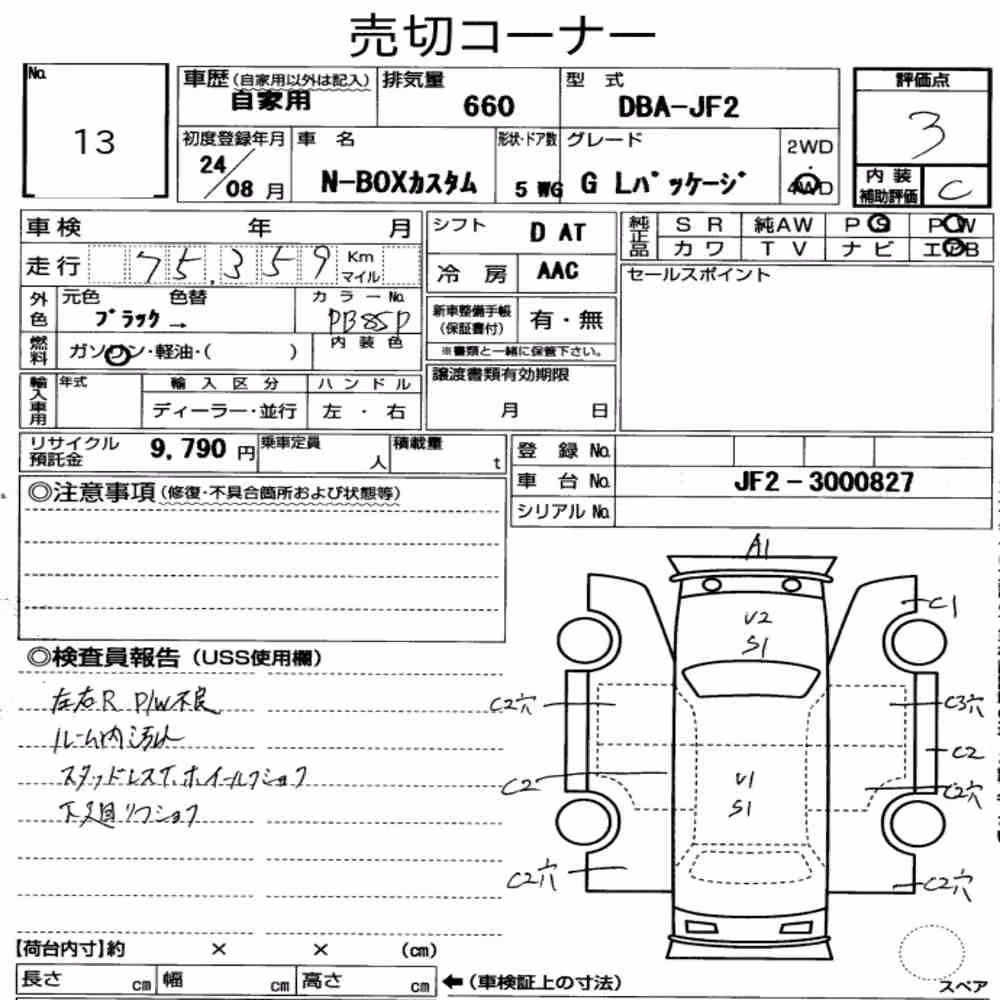 売切コーナー
No.
13
車歴(自家用以外は記入) 排気量 型 式 評価点
自家用 660 DBA-JF2 3
初度登録年月 車 名 形状・ドア数 グレード 2WD
24/08月 N-BOXカスタム 5 WG G Lパッケージ 4WD
内装補助評価 C
車検 年 月 シフト D AT 純正品 SR 純AW PS PW
カワ TV ナビ エアB
走行 75,359 Km マイル 冷房 AAC セールスポイント
外色 元色 色替 カラーNo.
ブラック→ PB85P
新車整備手帳(保証書付) 有・無
※書類と一緒に保管下さい。
燃料 ガソリン・軽油・( ) 内装色
譲渡書類有効期限
月 日
輸入車用 年式 輸入区分 ハンドル
ディーラー・並行 左・右
リサイクル預託金 9,790円 乗車定員 人 積載量 t 登録No.
車台No. JF2-3000827
シリアルNo.
◎注意事項(修復・不具合箇所および状態等)
◎検査員報告(USS使用欄)
左右R P/W不良
ルーム内汚れ
スタッドレスT.ホイールフショク
下廻りフショク
A1
C1
U2
S1
C2穴
C3穴
C2
C2
U1
S1
C2穴
C2穴
C2穴
【荷台内寸】約 × × (cm)
長さ cm 幅 cm 高さ cm ←(車検証上の寸法)
スペア